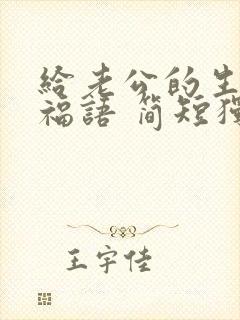 給老公的生
福語 簡短獨
王宇佳